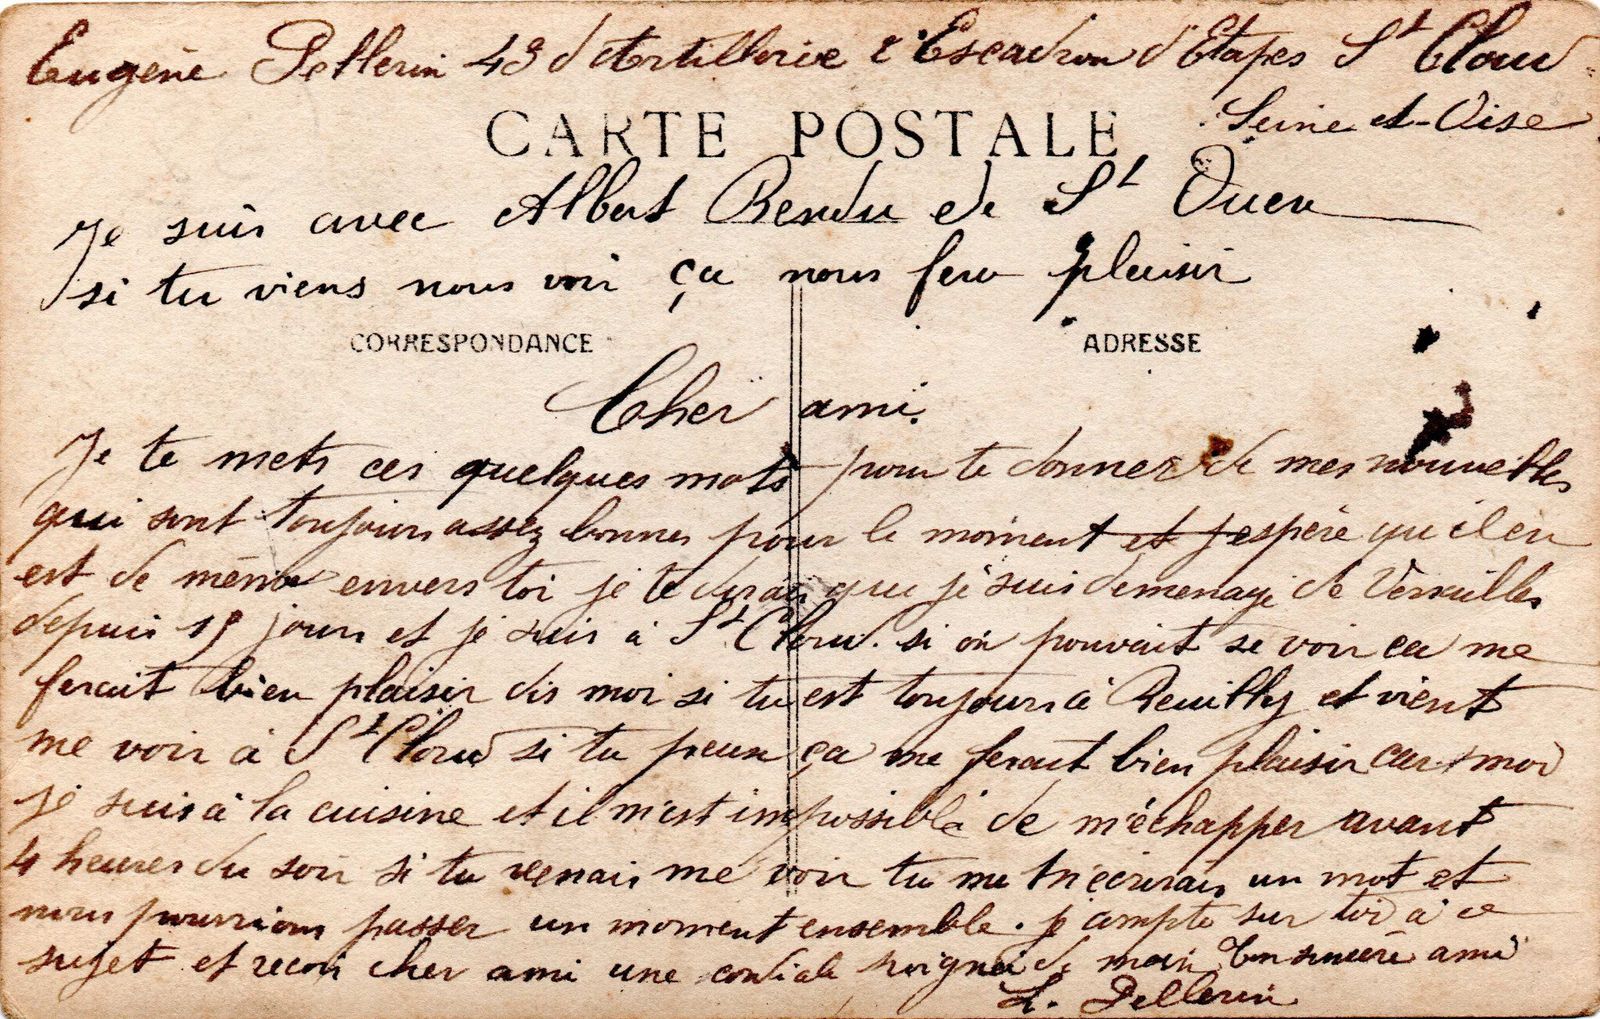 Eugène Pellerin 43 d'Artillerie Escadron d'Etapes St Cloud
Seine et-Oise
CARTE POSTALE
Je suis avec Albert Rendu de St Ouen
si tu viens nous voir ça nous fera plaisir
CORRESPONDANCE
ADRESSE
Cher ami.
Je te mets ces quelques mots pour te donner de mes nouvelles
qui sont toujours assez bonnes pour le moment et j'espère qu'il en
est de même envers toi je te dirai que je suis demenagé de Versailles
depuis 15 jours et je suis à St Cloud. si on pouvait se voir ca me
ferait bien plaisir dis moi si tu est toujours à Reuilly et vient
me voir à St Cloud si tu peux ça me ferait bien plaisir car moi
je suis à la cuisine et il m'est impossible de m'échapper avant
4 heures du soir si tu venais me voir tu me m'écrirais un mot et
nous pourrions passer un moment ensemble. je compte sur toi à ce
sujet et recoi cher ami une cordiale poignée de main Ton sincère ami
Pellerin